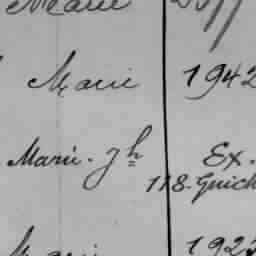 Marie
Marie 1942
Marie. Jh Ex.
118. Guich
192